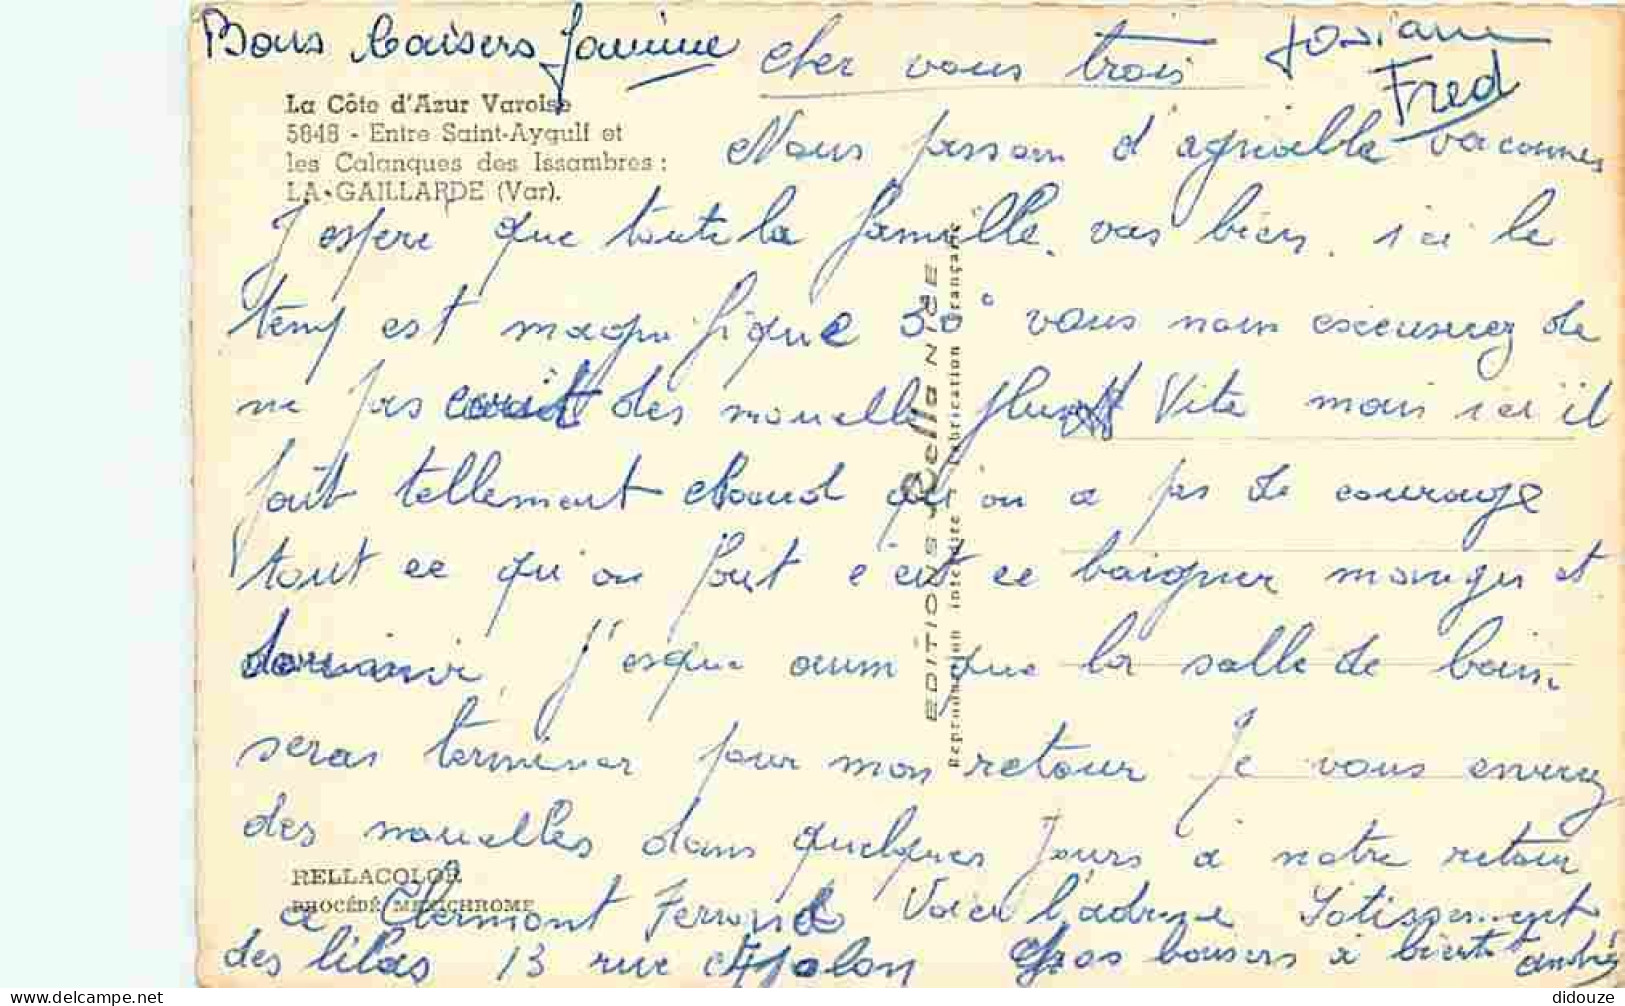 Bons baisers Janine
Josiane
Fred
cher vous trois
La Côte d'Azur Varoise
5848 - Entre Saint-Aygulf et
les Calanques des Issambres :
LA-GAILLARDE (Var).
Nous passon d'agriable vacannes
J'esper que toute la famille vas bien. ici le
temp est magnifique 30° vous nous excuserez de
ne pas des nouvelle plus Vite mais ici il
fait tellement chaud qu'on a pas de courage
tout ce qu'on fait c'est ce baigner manger et
dormir. J'espere aussi que la salle de bain
seras terminer pour mon retour Je vous enverez
des nouvelles dans quelques jours a notre retour
a Clermont Ferrand Voici l'adresse Lotissement
des lilas 13 rue Gros baisers a bientot andré
RELLACOLOR
PROCÉDÉ MEXICHROME
EDITIONS Rella NICE
Reproduction interdite - Fabrication Française
didouze
delcampe.net